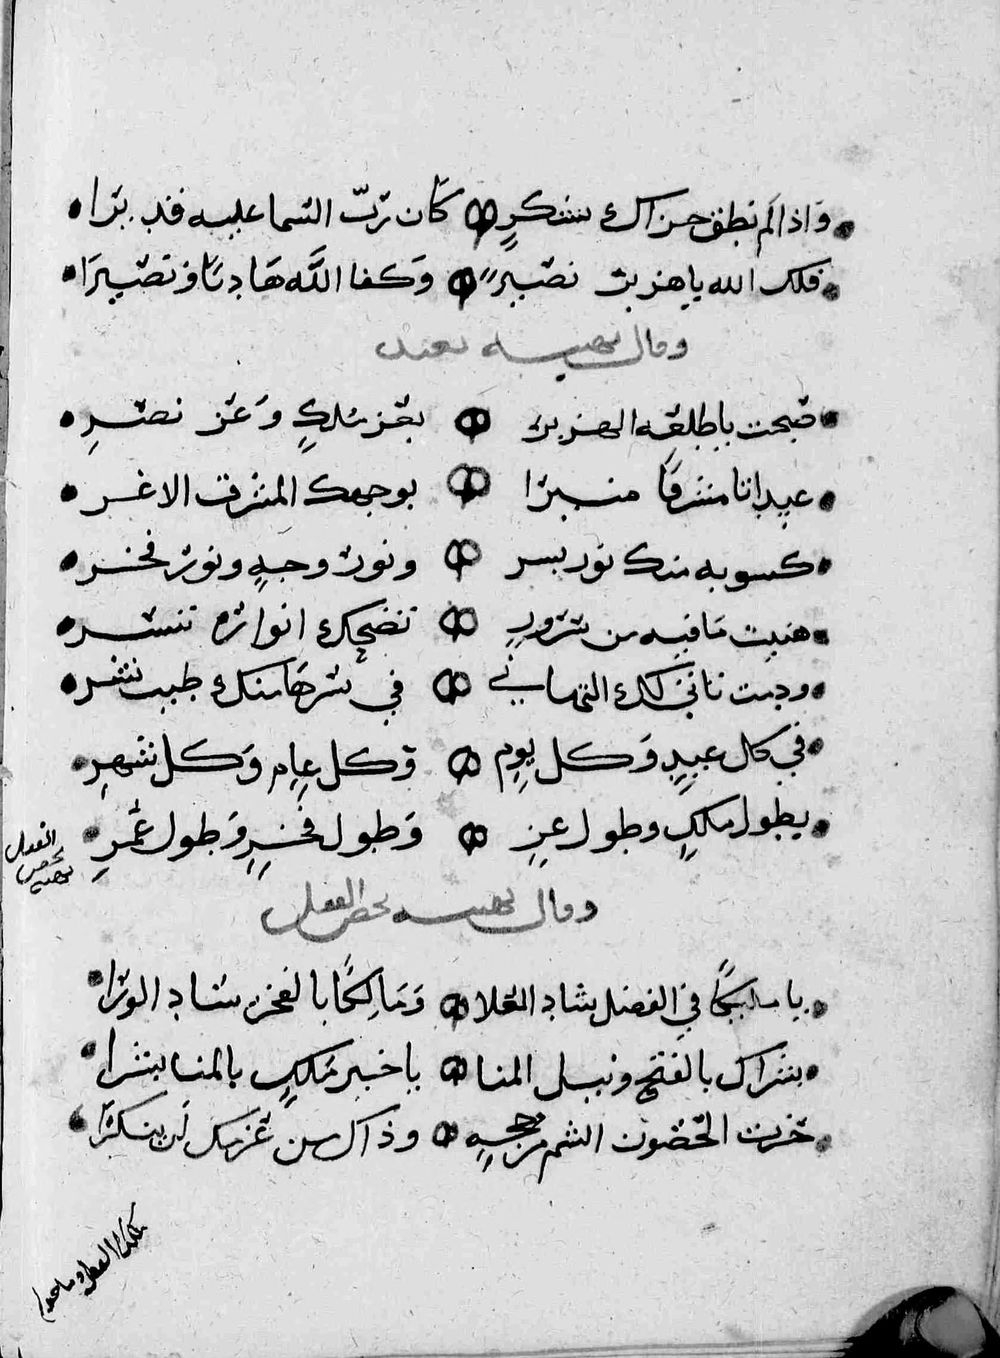 واذا لم نطق حزاك بشكرٍ كان ربّ السما عليه قديرا
فلك الله يا هزبر نصيرٌ وكفا الله هاديًا ونصيرَا
وقال يهنيه بعيد
صبحت يا طلعه الهزبر بعز ملكٍ وعز نصرِ
عيد اتا مشرقا منيرا بوجهك المشرق الاغر
كسوبه منك نور بسر ونور وجهٍ ونور فخر
هنيت ما فيه من سرورٍ تضحك انواره
ودمت تاتي لك التهاني في منك طيب نشر
في كل عيدٍ وكل يومٍ وكل عامٍ وكل شهرِ
بطول ملكٍ وطول عزٍ وطول فخرٍ وطول عمرِ
وقال يهنيه بحصن الفعل
يا مالكًا في الفضل شاد العلا ومالكًا بالفخر ساد الورا
بشراك بالفتح ونيل المنا يا خير ملكٍ بالمنا بشرا
حزت الحصون الشم وذاك من عزمك لن ينكرا